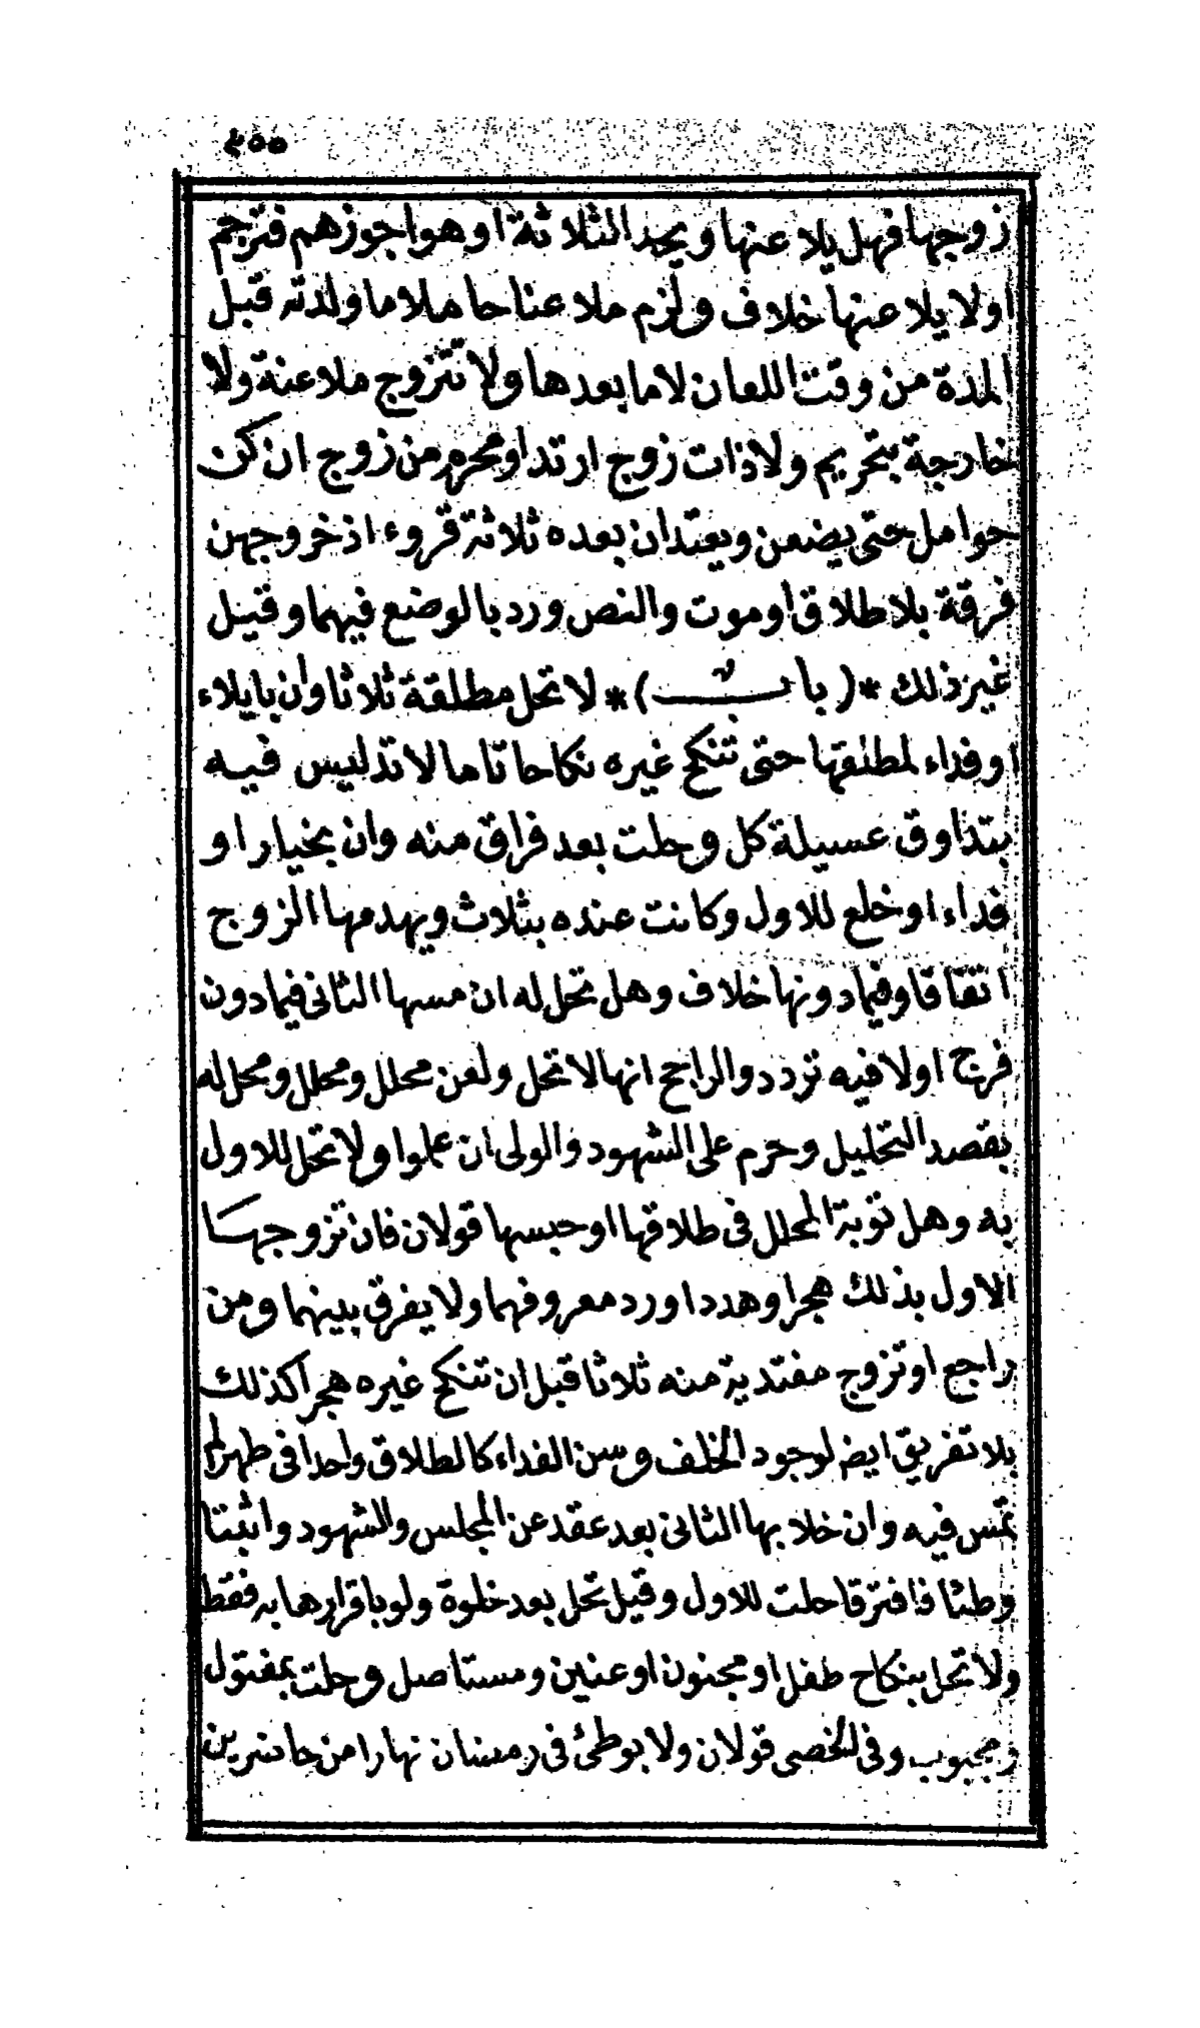 ٤٥٥
زوجها فهل يلاعنها ويحد الثلاثة او هو اجوزهم فترجم
اولا يلاعنها خلاف ولزم ملاعنا حاملا ما ولدته قبل
المدة من وقت اللعان لا ما بعدها ولا تتزوج ملاعنة ولا
خارجة بتحريم ولا ذات زوج ارتد او محرم من زوج ان كن
حوامل حتى يضعن ويعتدان بعده ثلاثة قروء اذ خروجهن
فرقة بلا طلاق او موت والنص ورد بالوضع فيهما وقيل
غير ذلك *(باب)* لا تحل مطلقة ثلاثا وان بايلاء
او فداء لمطلقها حتى تنكح غيره نكاحا تاما لا تدليس فيه
بتذاوق عسيلة كل وحلت بعد فراق منه وان بخيار او
فداء او خلع للاول وكانت عنده بثلاث ويهدمها الزوج
اتفاقا وفيما دونها خلاف وهل تحل له ان مسها الثانى فيما دون
فرج اولا فيه تردد والراجح انها لا تحل ولعن محلل ومحلل ومحل له
بقصد التحليل وحرم على الشهود والولى ان علموا ولا تحل للاول
به وهل توبة المحلل فى طلاقها او حبسها قولان فان تزوجها
الاول بذلك هجرا وهددا ورد معروفهما ولا يفرق بينهما ومن
راجع او تزوج مفتدية منه ثلاثا قبل ان تنكح غيره هجرا كذلك
بلا تفريق ايضا لوجود الخلف وسن الفداء كالطلاق واحدا فى طهر لم
تمس فيه وان خلا بها الثانى بعد عقد عن المجلس والشهود واثبتا
وطئا فافترقا حلت للاول وقيل تحل بعد خلوة ولو باقرارها به فقط
ولا تحل بنكاح طفل او مجنون او عنين ومستاصل وحلت بمفتول
ومجبوب وفى الخصى قولان ولا بوطئ فى رمضان نهارا من حاضرين